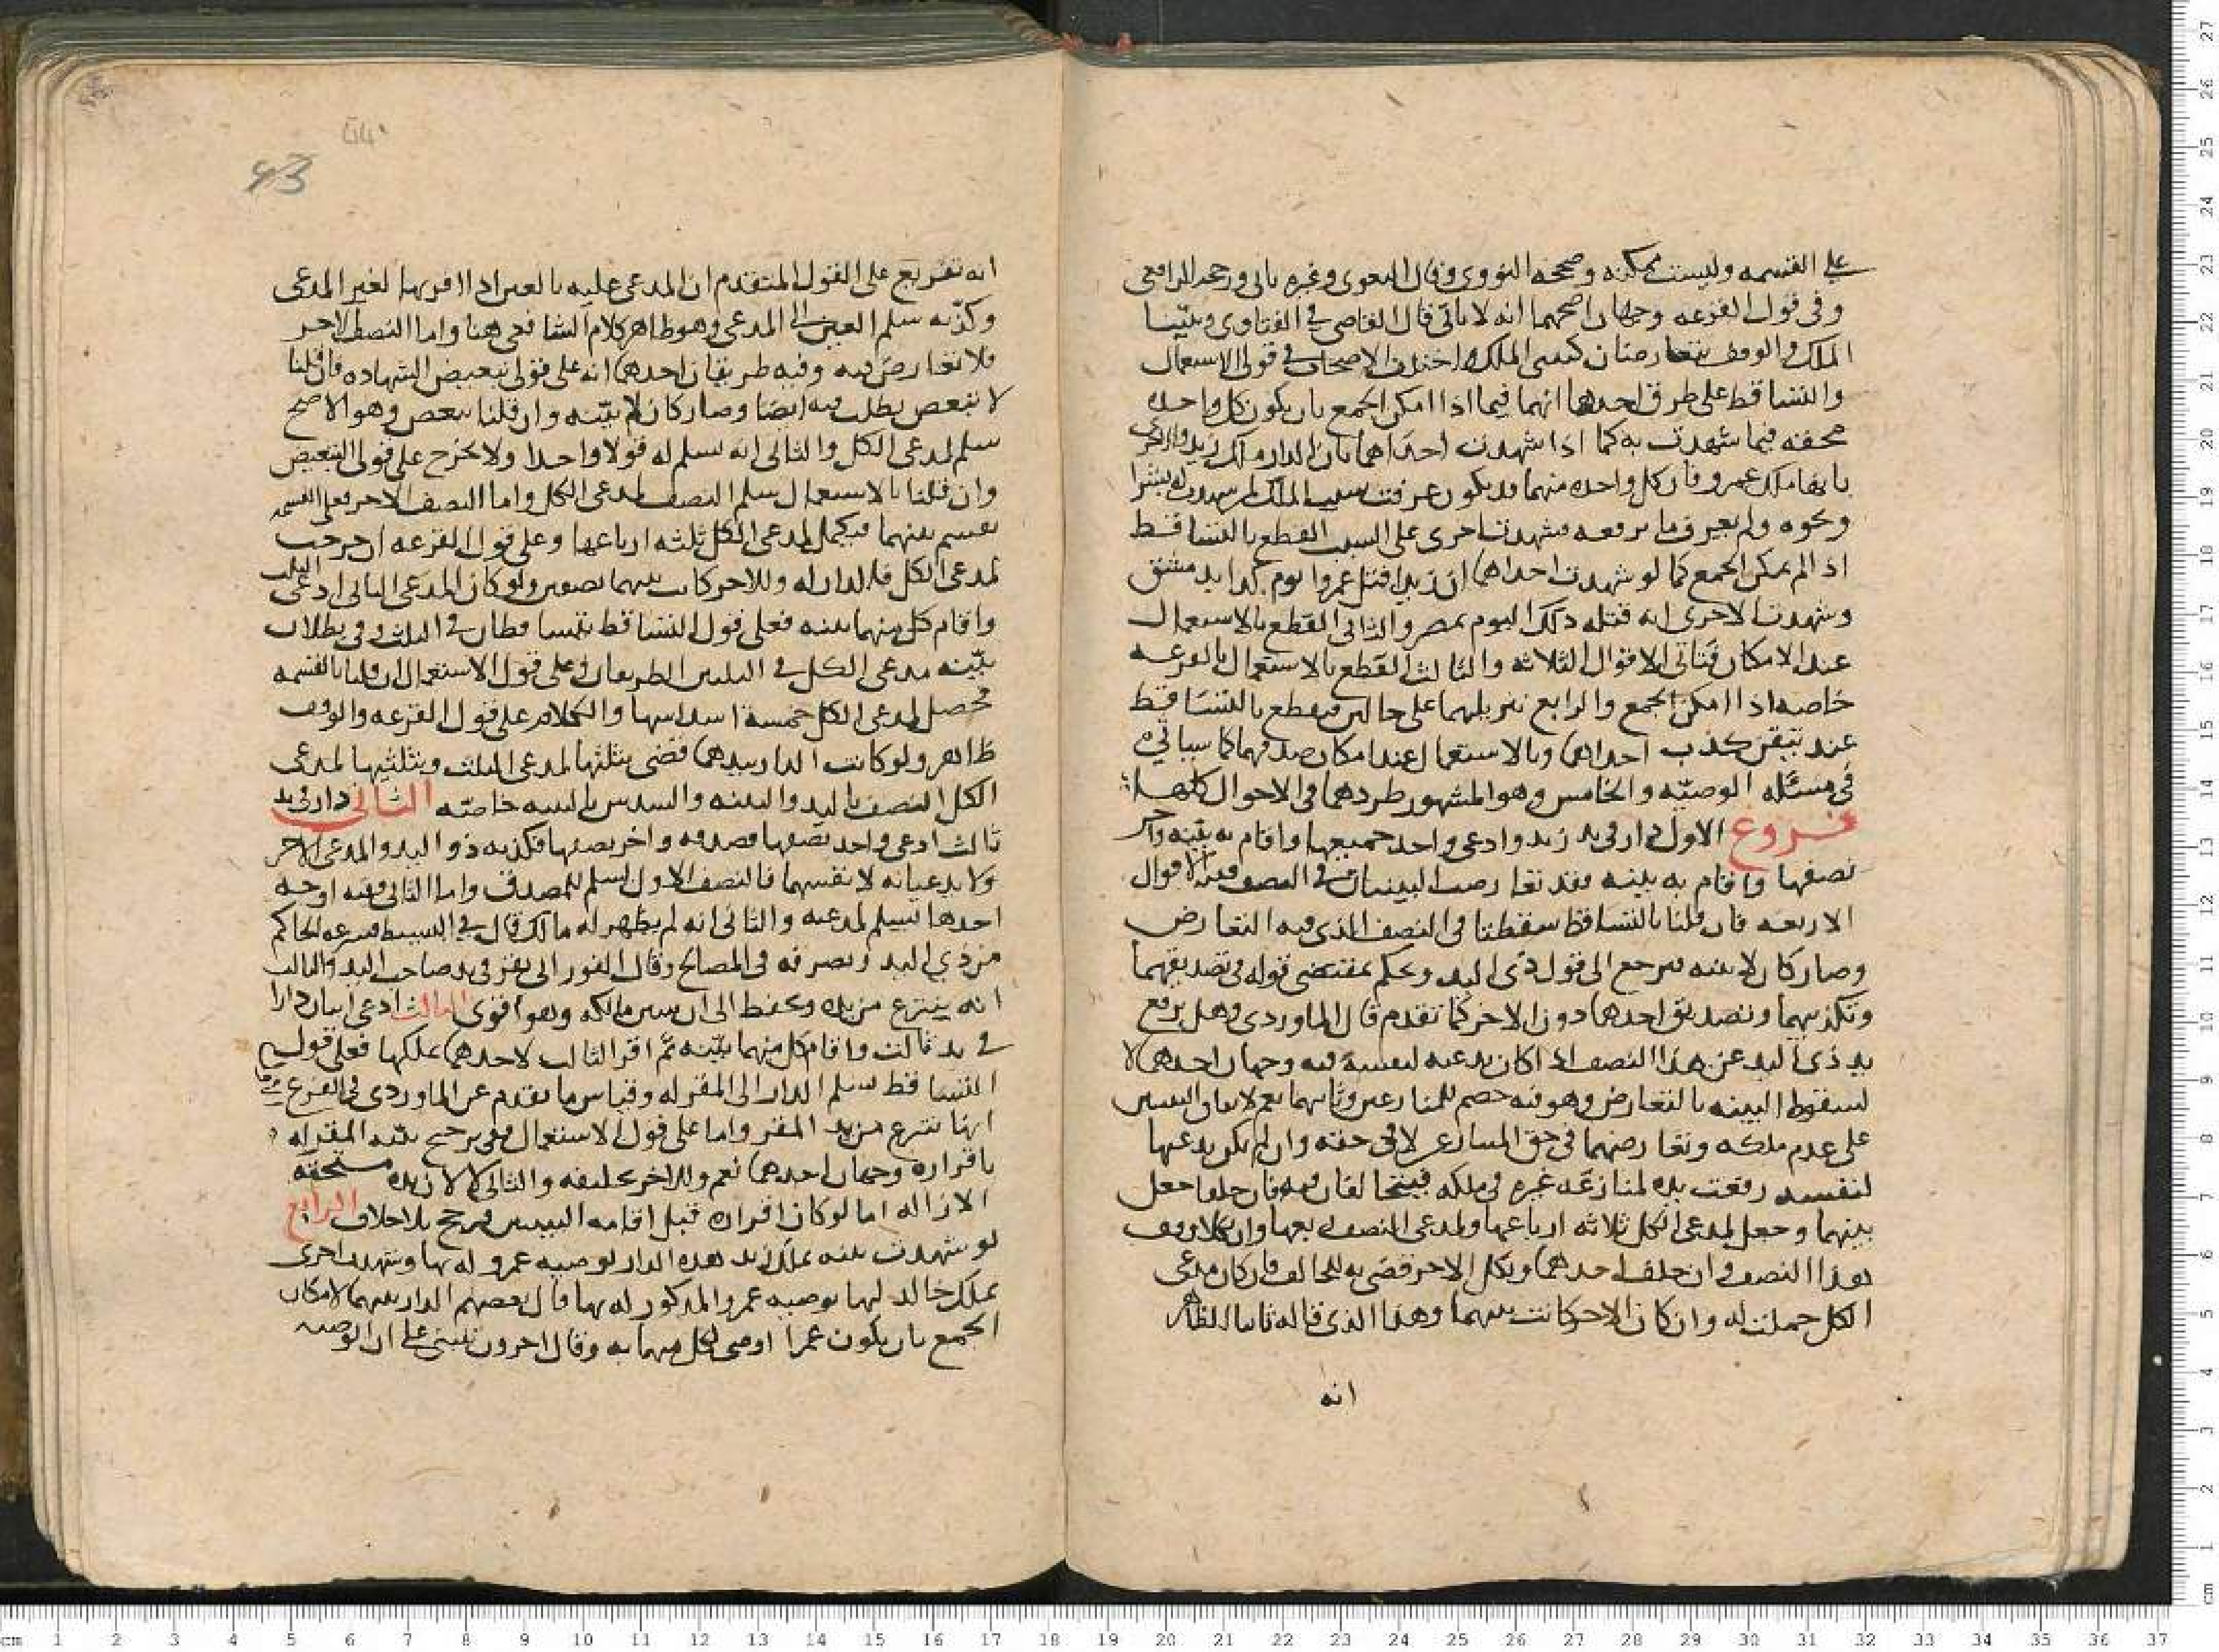 على القسمه وليست ممكنه وصححه النووى وقال البغوى وغيره ياتى ورجحه الرافعى
وفى قول القرعه وجهان اصحهما انه لا ياتى قال القاضى فى الفتاوى وبينتا
الملك والوقف يتعارضتان كبينتى الملك واختلف الاصحاب فى قولى الاستعمال
والتساقط على طرق احدها انهما فيما اذا امكن الجمع بان يكون كل واحده
محقه فيما شهدت به كما اذا شهدت احداهما بان الدار ملك زيد والاخرى
بانها ملك عمرو فان كل واحده منهما قد يكون عرفت سبب الملك لمن شهدت له بشرا
ونحوه ولم يعرف ما يرفعه فشهدت اخرى على السبب القطع بالتساقط
اذ الم يمكن الجمع كما لو شهدت احداهما ان زيدا قتل عمروا يوم كذا بدمشق
وشهدت الاخرى انه قتله ذلك اليوم بمصر والثانى القطع بالاستعمال
عند الامكان فتاتى الاقوال الثلاثه والثالث القطع بالاستعمال بالقرعه
خاصه اذا امكن الجمع والرابع تنزيلهما على حالين فيقطع بالتساقط
عند تيقن كذب احداهما وبالاستعمال عند امكان صدقهما كما سياتى
فى مسئله الوصيّه والخامس وهو المشهور طردهما فى الاحوال كلها
فروع الاول دار فى يد زيد وادعى واحد جميعها واقام به بينه واخر
نصفها واقام به بينه فقد تعارضت البينتان فى النصف فيه الاقوال
الاربعه فان قلنا بالتساقط سقطتا فى النصف الذى فيه التعارض
وصار كان لا بينه فيرجع الى قول ذى اليد ويحكم بمقتضى قوله فى تصديقهما
وتكذيبهما وتصديق احدهما دون الاخر كما تقدم قال الماوردى وهل يرفع
يد ذى اليد عن هذا النصف اذا كان يدعيه لنفسه فيه وجهان احدهما لا
لسقوط البينه بالتعارض وهو فيه خصم للمتنازعين وثانيهما نعم لاتفاق البينتين
على عدم ملكه وتعارضهما فى حق المتنازعين لا فى حقه وان لم يكن يدعيها
لنفسه رفعت يده لمنازعه غيره فى ملكه فيتحالفان فيه فان حلفا جعل
بينهما وجعل لمدعى الكل ثلاثه ارباعها ولمدعى النصف ربعها وان نكلا وقف
هذا النصف وان حلف احدهما ونكل الاخر قضى به للحالف فان كان مدعى
الكل جعلت له وان كان الاخر كانت بينهما وهذا الذى قاله ثانيا الظاهر
انه
انه تفريع على القول المتقدم ان المدعى عليه بالعين اذا اقر بها لغير المدعى
وكذّبه سلم العين الى المدعى وهو ظاهر كلام الشافعى هنا واما النصف الاخر
فلا تعارض فيه وفيه طريقان احدهما انه على قولى تبعيض الشهاده فان قلنا
لا تتبعض بطلت فيه ايضا وصار كان لا بيّنه وان قلنا تتبعض وهو الاصح
سلم لمدعى الكل والثانى انه يسلم له قولا واحدا ولا يخرج على قولى التبعيض
وان قلنا بالاستعمال سلم النصف لمدعى الكل واما النصف الاخر فعلى القسمه
يقسم بينهما فيكمل لمدعى الكل ثلثه ارباعها وعلى قول القرعه ان خرجت
لمدعى الكل فالدار له وللاخر كانت بينهما نصفين ولو كان المدعى الثانى ادعى الثلث
واقام كل منهما بينه فعلى قول التساقط يتساقطان فى الثلث وفى بطلان
بيّنه مدعى الكل فى الثلثين الطريقان وعلى قول الاستعمال ان قلنا بالقسمه
يحصل لمدعى الكل خمسة اسداسها والكلام على قول القرعه والوقف
ظاهر ولو كانت الدار بيدهما قضى بثلثها لمدعى الثلث وبثلثيها لمدعى
الكل النصف باليد والبينه والسدس بالبينه خاصّه الثانى دار فى يد
ثالث ادعى واحد نصفها فصدقه واخر نصفها فكذبه ذو اليد والمدعى الاخر
ولا يدعيانه لانفسهما فالنصف الاول يسلم للمصدق واما الثانى ففيه اوجه
احدها تسلم لمدعيه والثانى انه لم يظهر له مالك قال فى البسيط فينزعه الحاكم
من ذى اليد ويصرفه فى المصالح وقال الفورانى يقر فى يد صاحب اليد والثالث
انه ينتزع من يده ويحفظ الى ان يتبين مالكه وهو اقوى الثالث ادعى اثنان دارا
فى يد ثالث واقام كل منهما بيّنه ثم اقر الثالث لاحدهما بملكها فعلى قول
التساقط تسلم الدار الى المقر له وقياس ما تقدم عن الماوردى فى الفرع
انها تنتزع من يد المقر واما على قول الاستعمال ففى ترجيح بيّنه المقر له
باقراره وجهان احدهما نعم وللاخر تحليفه والثانى لا لان يده مستحقه
الازاله اما لو كان اقراره قبل اقامه البينتين فيرجح بلا خلاف الرابع
لو شهدت بينه بملك زيد هذه الدار لوصيه عمرو له بها وشهدت اخرى
بملك خالد لها بوصيه عمرو المذكور له بها قال بعضهم الدار بينهما لامكان
الجمع بان يكون عمرا اوصى لكل منهما به وقال اخرون يبتنى على ان الوصيه